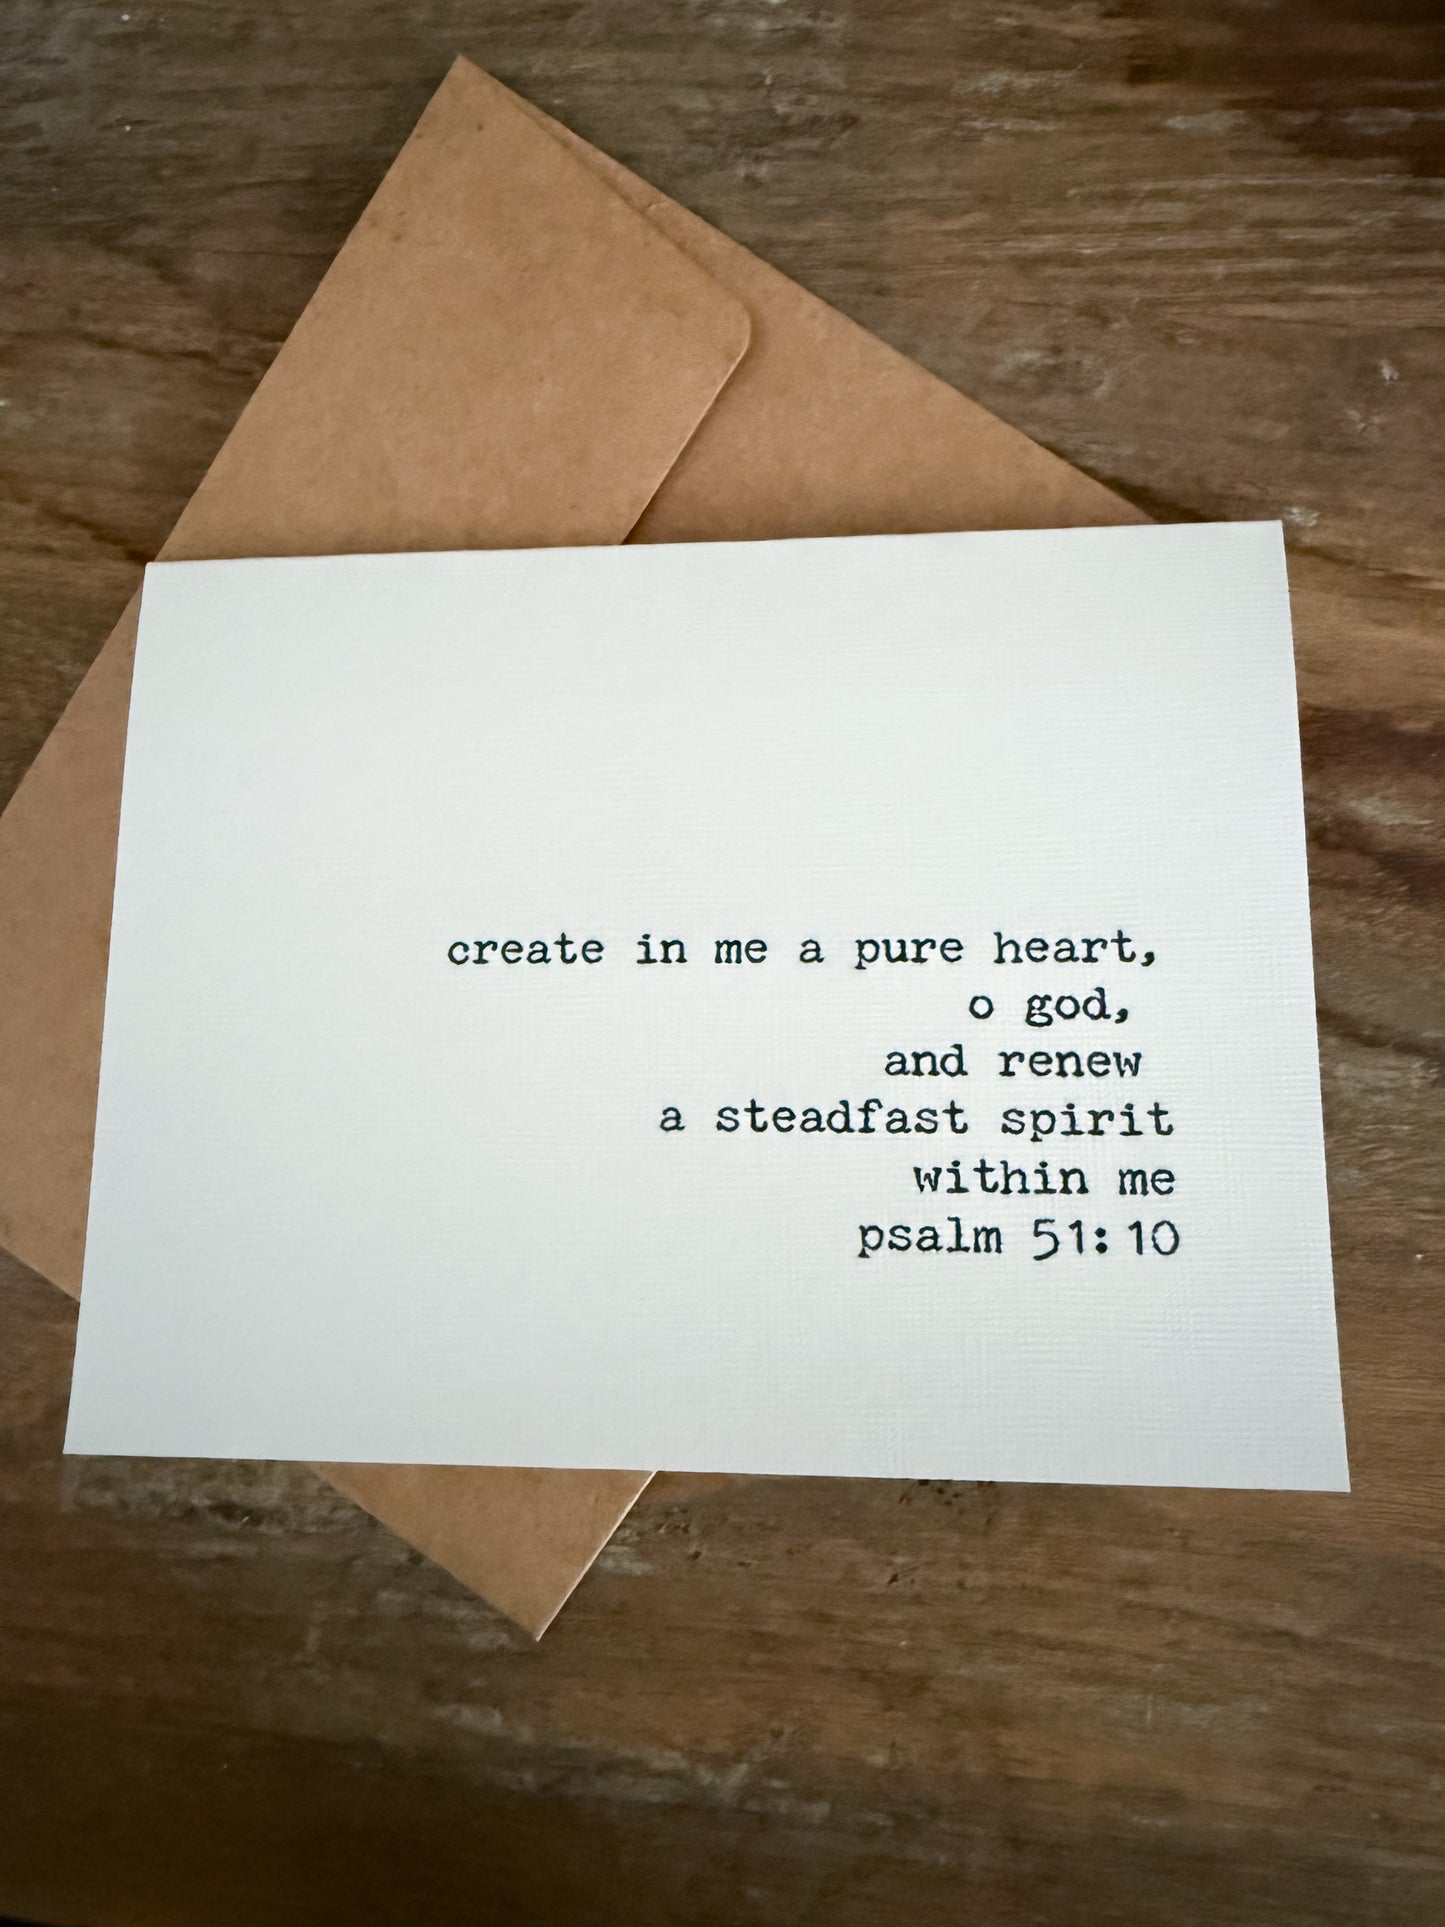 create in me a pure heart,
o god,
and renew
a steadfast spirit
within me
psalm 51:10